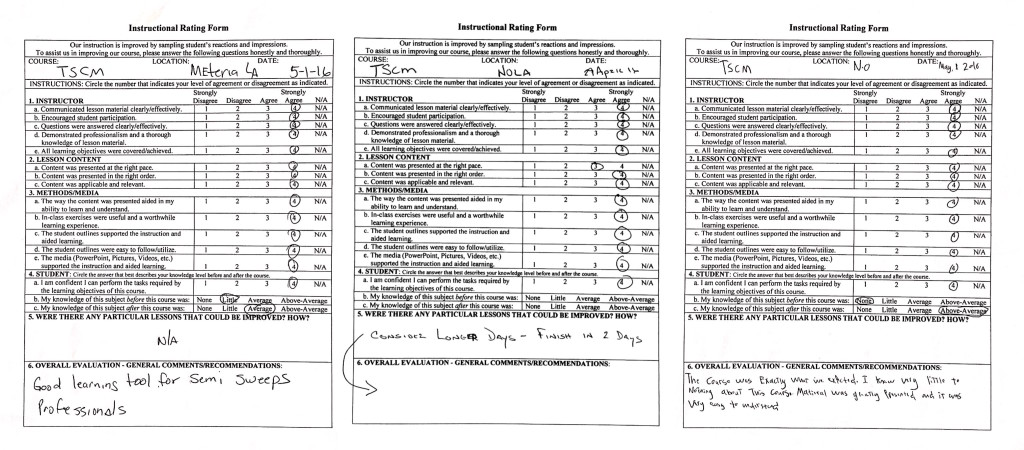 Instructional Rating Form
Our instruction is improved by sampling student's reactions and impressions.
To assist us in improving our course, please answer the following questions honestly and thoroughly.
COURSE: TSCM LOCATION: Meteria LA DATE: 5-1-16
INSTRUCTIONS: Circle the number that indicates your level of agreement or disagreement as indicated.
Strongly Strongly
1. INSTRUCTOR Disagree Disagree Agree Agree N/A
a. Communicated lesson material clearly/effectively. 1 2 3 4 N/A
b. Encouraged student participation. 1 2 3 4 N/A
c. Questions were answered clearly/effectively. 1 2 3 4 N/A
d. Demonstrated professionalism and a thorough 1 2 3 4 N/A
knowledge of lesson material.
e. All learning objectives were covered/achieved. 1 2 3 4 N/A
2. LESSON CONTENT
a. Content was presented at the right pace. 1 2 3 4 N/A
b. Content was presented in the right order. 1 2 3 4 N/A
c. Content was applicable and relevant. 1 2 3 4 N/A
3. METHODS/MEDIA
a. The way the content was presented aided in my 1 2 3 4 N/A
ability to learn and understand.
b. In-class exercises were useful and a worthwhile 1 2 3 4 N/A
learning experience.
c. The student outlines supported the instruction and 1 2 3 4 N/A
aided learning.
d. The student outlines were easy to follow/utilize. 1 2 3 4 N/A
e. The media (PowerPoint, Pictures, Videos, etc.)
supported the instruction and aided learning. 1 2 3 4 N/A
4. STUDENT: Circle the answer that best describes your knowledge level before and after the course.
a. I am confident I can perform the tasks required by 1 2 3 4 N/A
the learning objectives of this course.
b. My knowledge of this subject before this course was: None Little Average Above-Average
c. My knowledge of this subject after this course was: None Little Average Above-Average
5. WERE THERE ANY PARTICULAR LESSONS THAT COULD BE IMPROVED? HOW?
N/A
6. OVERALL EVALUATION - GENERAL COMMENTS/RECOMMENDATIONS:
Good learning tool for Semi Sweeps
Professionals
Instructional Rating Form
Our instruction is improved by sampling student's reactions and impressions.
To assist us in improving our course, please answer the following questions honestly and thoroughly.
COURSE: TSCM LOCATION: NOLA DATE: April 16
INSTRUCTIONS: Circle the number that indicates your level of agreement or disagreement as indicated.
Strongly Strongly
1. INSTRUCTOR Disagree Disagree Agree Agree N/A
a. Communicated lesson material clearly/effectively. 1 2 3 4 N/A
b. Encouraged student participation. 1 2 3 4 N/A
c. Questions were answered clearly/effectively. 1 2 3 4 N/A
d. Demonstrated professionalism and a thorough 1 2 3 4 N/A
knowledge of lesson material.
e. All learning objectives were covered/achieved. 1 2 3 4 N/A
2. LESSON CONTENT
a. Content was presented at the right pace. 1 2 3 4 N/A
b. Content was presented in the right order. 1 2 3 4 N/A
c. Content was applicable and relevant. 1 2 3 4 N/A
3. METHODS/MEDIA
a. The way the content was presented aided in my 1 2 3 4 N/A
ability to learn and understand.
b. In-class exercises were useful and a worthwhile 1 2 3 4 N/A
learning experience.
c. The student outlines supported the instruction and 1 2 3 4 N/A
aided learning.
d. The student outlines were easy to follow/utilize. 1 2 3 4 N/A
e. The media (PowerPoint, Pictures, Videos, etc.)
supported the instruction and aided learning. 1 2 3 4 N/A
4. STUDENT: Circle the answer that best describes your knowledge level before and after the course.
a. I am confident I can perform the tasks required by 1 2 3 4 N/A
the learning objectives of this course.
b. My knowledge of this subject before this course was: None Little Average Above-Average
c. My knowledge of this subject after this course was: None Little Average Above-Average
5. WERE THERE ANY PARTICULAR LESSONS THAT COULD BE IMPROVED? HOW?
Consider Longer Days - Finish in 2 Days
6. OVERALL EVALUATION - GENERAL COMMENTS/RECOMMENDATIONS:
Instructional Rating Form
Our instruction is improved by sampling student's reactions and impressions.
To assist us in improving our course, please answer the following questions honestly and thoroughly.
COURSE: TSCM LOCATION: No DATE: May, 1 2016
INSTRUCTIONS: Circle the number that indicates your level of agreement or disagreement as indicated.
Strongly Strongly
1. INSTRUCTOR Disagree Disagree Agree Agree N/A
a. Communicated lesson material clearly/effectively. 1 2 3 4 N/A
b. Encouraged student participation. 1 2 3 4 N/A
c. Questions were answered clearly/effectively. 1 2 3 4 N/A
d. Demonstrated professionalism and a thorough 1 2 3 4 N/A
knowledge of lesson material.
e. All learning objectives were covered/achieved. 1 2 3 4 N/A
2. LESSON CONTENT
a. Content was presented at the right pace. 1 2 3 4 N/A
b. Content was presented in the right order. 1 2 3 4 N/A
c. Content was applicable and relevant. 1 2 3 4 N/A
3. METHODS/MEDIA
a. The way the content was presented aided in my 1 2 3 4 N/A
ability to learn and understand.
b. In-class exercises were useful and a worthwhile 1 2 3 4 N/A
learning experience.
c. The student outlines supported the instruction and 1 2 3 4 N/A
aided learning.
d. The student outlines were easy to follow/utilize. 1 2 3 4 N/A
e. The media (PowerPoint, Pictures, Videos, etc.)
supported the instruction and aided learning. 1 2 3 4 N/A
4. STUDENT: Circle the answer that best describes your knowledge level before and after the course.
a. I am confident I can perform the tasks required by 1 2 3 4 N/A
the learning objectives of this course.
b. My knowledge of this subject before this course was: None Little Average Above-Average
c. My knowledge of this subject after this course was: None Little Average Above-Average
5. WERE THERE ANY PARTICULAR LESSONS THAT COULD BE IMPROVED? HOW?
6. OVERALL EVALUATION - GENERAL COMMENTS/RECOMMENDATIONS:
The Course was Exactly what I knew very little to
Nothing about This Course Material was Presented and it was
Very easy to understand